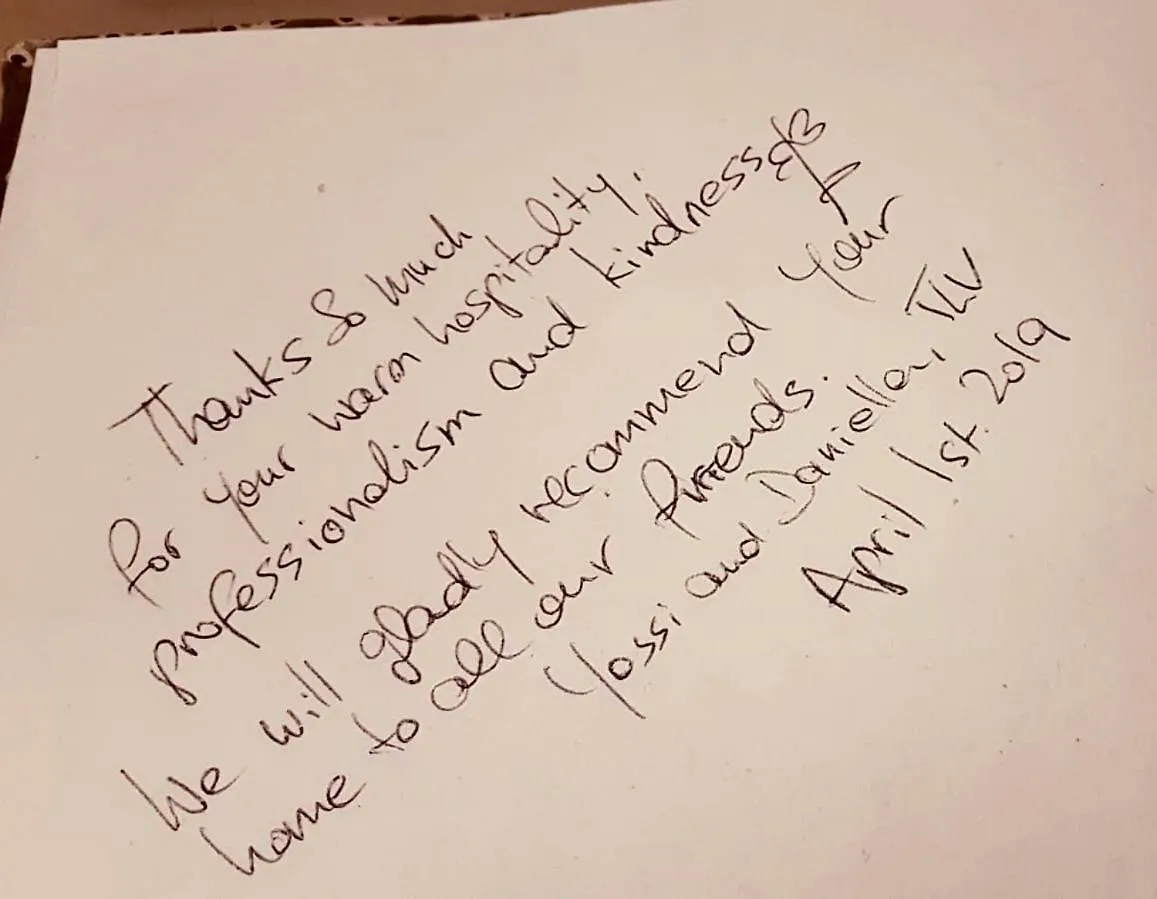 Thanks So much
for your warm hospitality,
professionalism and kindness
We will gladly recommend your
home to all our friends.
Yossi and Daniella, TLV
April 1st. 2019